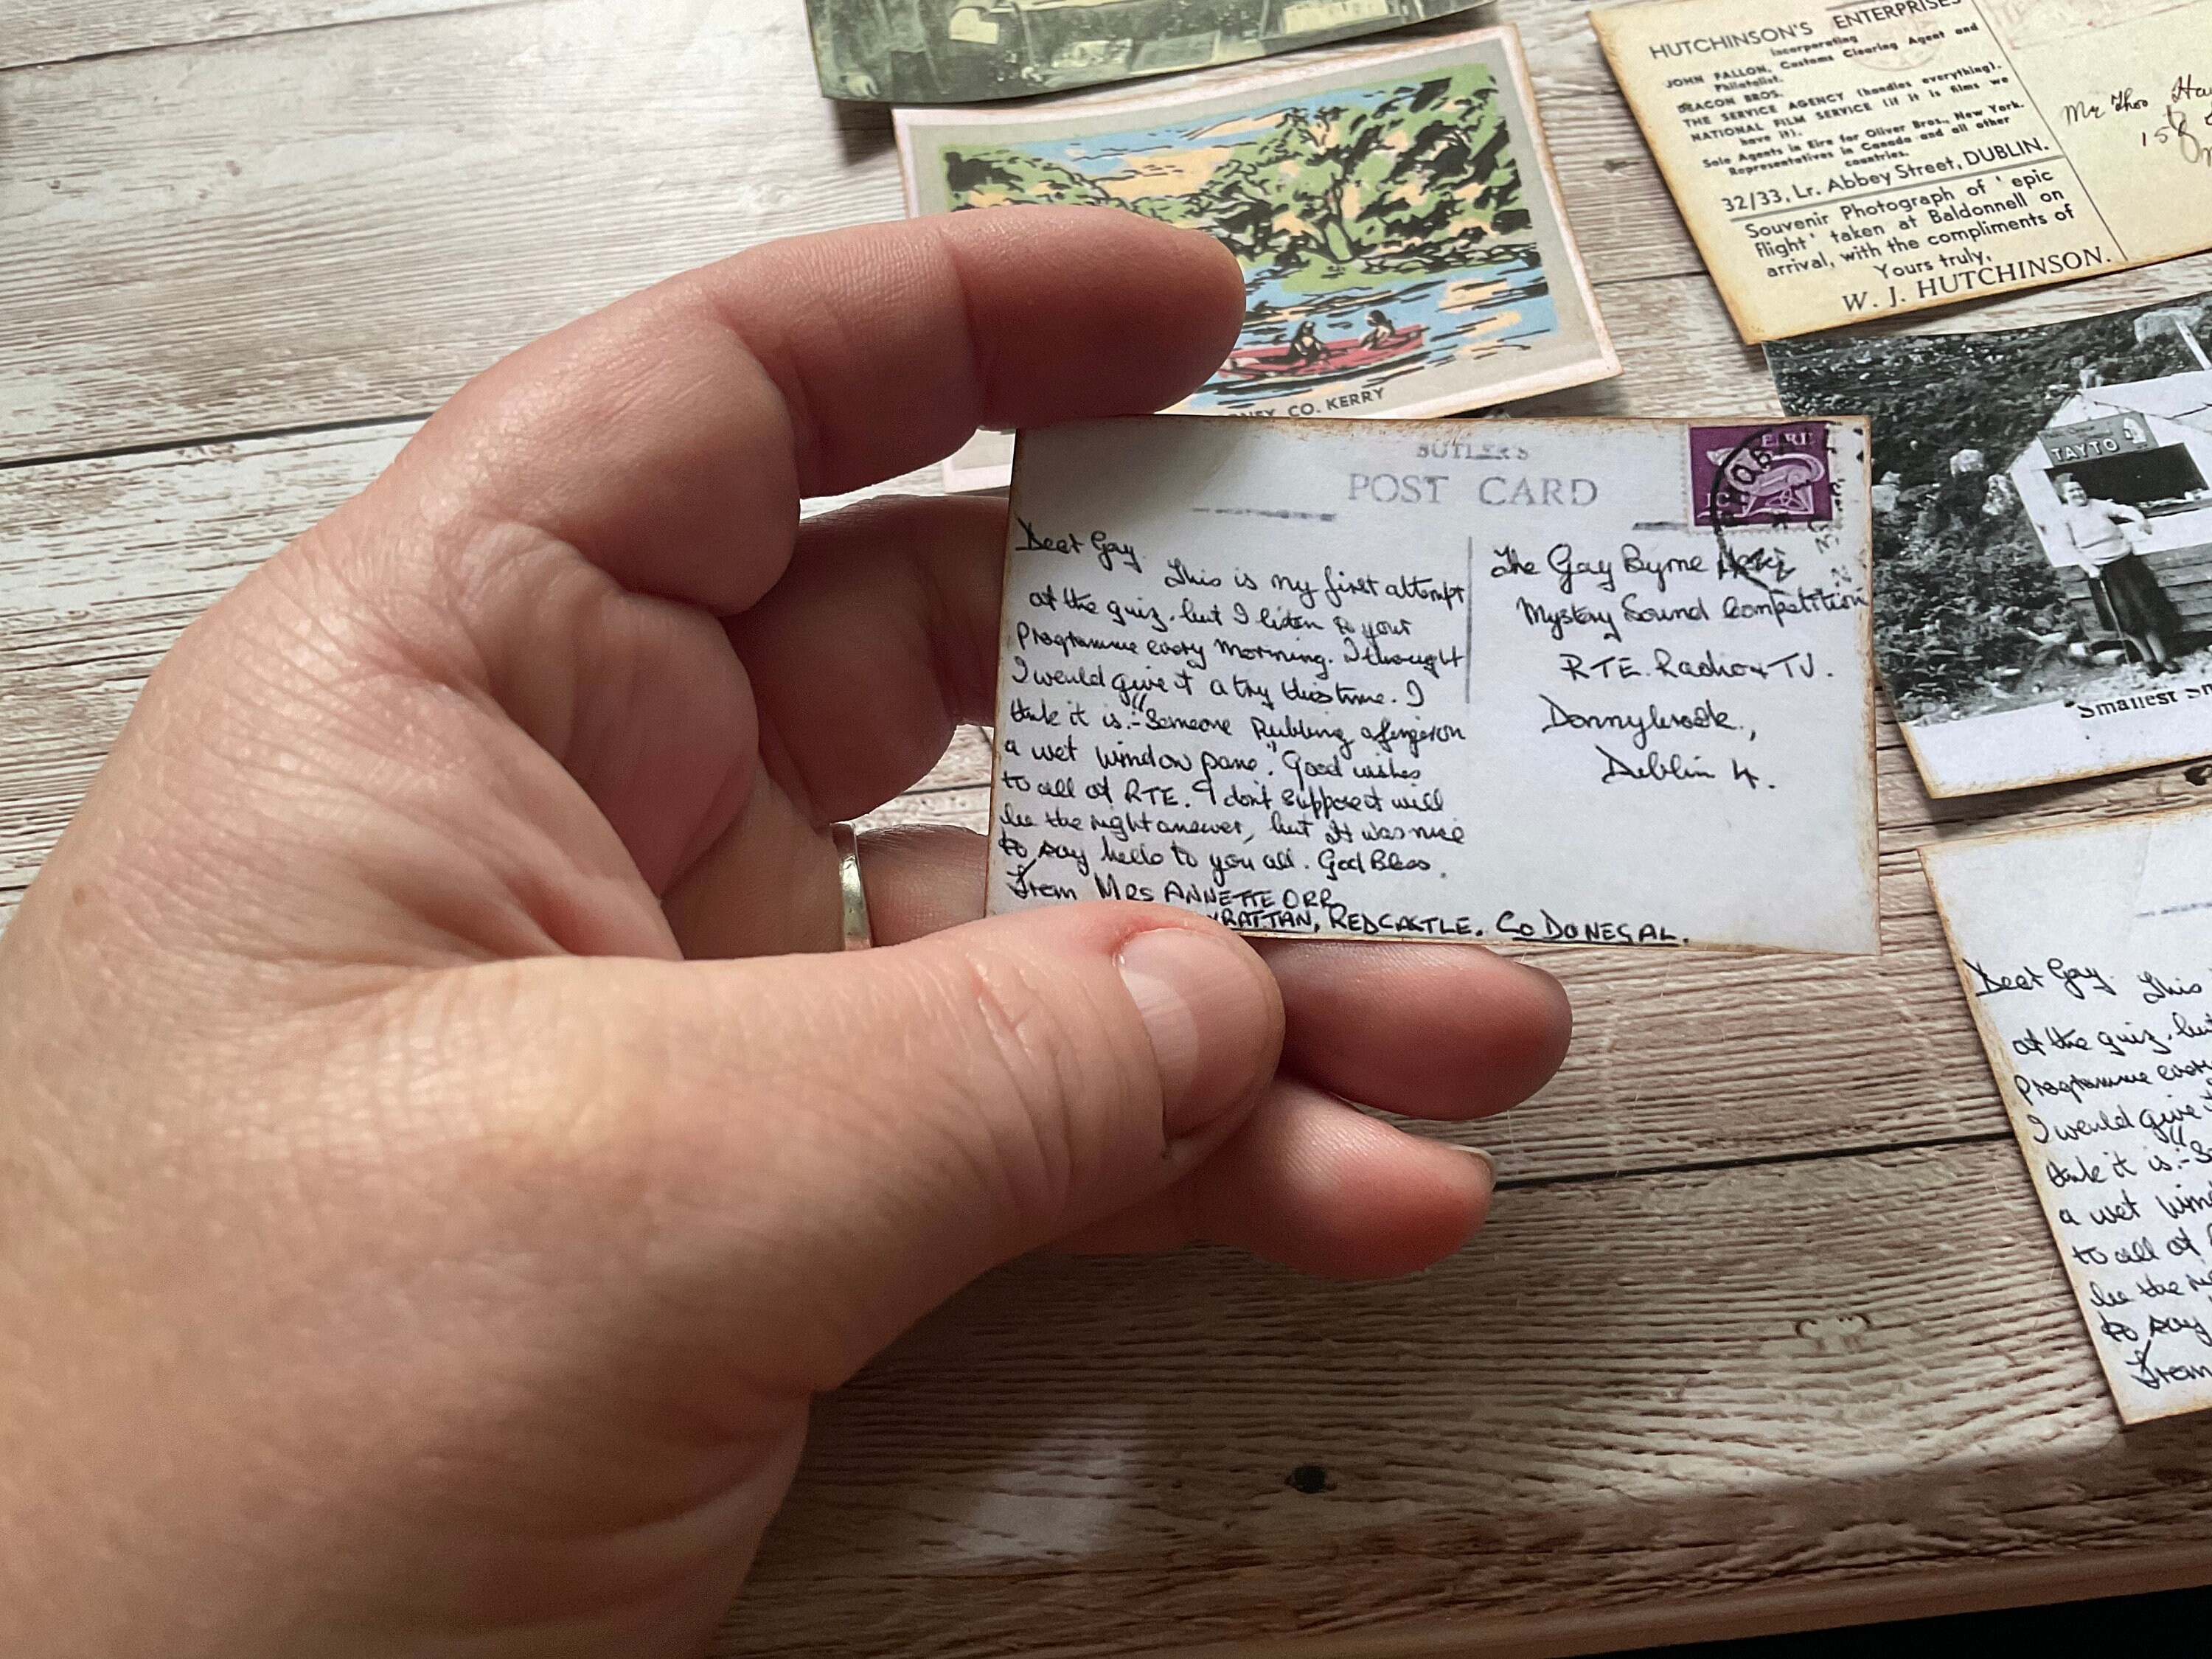 HUTCHINSON'S ENTERPRISES
Incorporating
JOHN FALLON, Customs Clearing Agent and
Philatelist.
DEACON BROS.
THE SERVICE AGENCY (handles everything).
NATIONAL FILM SERVICE (if it is films we
have it).
Sole Agents in Eire for Oliver Bros., New York.
Representatives in Canada and all other
countries.
32/33, Lr. Abbey Street, DUBLIN.
Souvenir Photograph of 'epic
flight' taken at Baldonnell on
arrival, with the compliments of
Yours truly,
W. J. HUTCHINSON.
Mr Thos
158
CO. KERRY
TAYTO
"Smallest
BUTLER'S
POST CARD
EIRE
Dear Gay
This is my first attempt
at the quiz, but I listen to your
Programme every morning. I thought
I would give it a try this time. I
think it is:- "Someone Rubbing a finger on
a wet window pane". Good wishes
to all at RTE. I don't suppose it will
be the right answer, but it was nice
to say hello to you all. God Bless.
From MRS ANNETTE ORR
RATTAN, REDCASTLE. CO DONEGAL.
The Gay Byrne
Mystery Sound Competition
RTE. Radio & TV.
Donnybrook,
Dublin 4.
Dear Gay. This
at the quiz, but
Programme every
I would give it
think it is:-
a wet
to all at
be the
to say
From